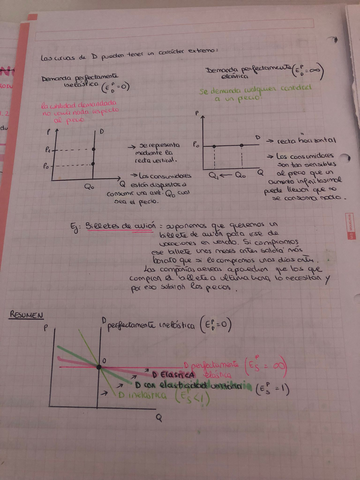 Las curvas de D pueden tener un carácter extremo:
Demanda perfectamente inelástica (E_P^P=0)
La cantidad demandada
no varía
al precio.
P
D
P₁
P₀
Q₀
Q
→ Se representa
mediante la
recta vertical.
→ Los consumidores
están dispuestos a
consumir una cant. Q₀
sea el precio.
Demanda perfectamente
elástica (E =∞)
Se demanda cualquier cantidad
a un precio
P
P₀
D
Q₁ ← Q₀
Q
→ recta horizontal
→ Los consumidores
son tan sensibles
al precio que un
aumento infinitesimal
puede llevar que no
se consuma nada.
Ej: Billetes de avión: suponemos que queremos un
billete de avión para ese de
vacaciones en verano. Si compramos
ese billete unos meses antes saldrá más
barato que si lo compramos unos días antes.
Las compañías aéreas aprovechan que los que
compran el billete a última hora lo necesitan y
por eso suben los precios.
RESUMEN
P
D perfectamente inelástica (E =0)
D perfectamente elástica (E =∞)
D Elástica
D con elasticidad unitaria (E =1)
D inelástica (E <1)
Q